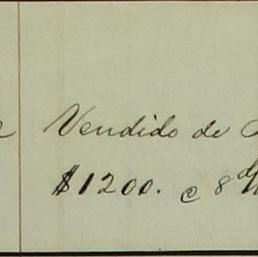 Vendido de
$1200. c 8